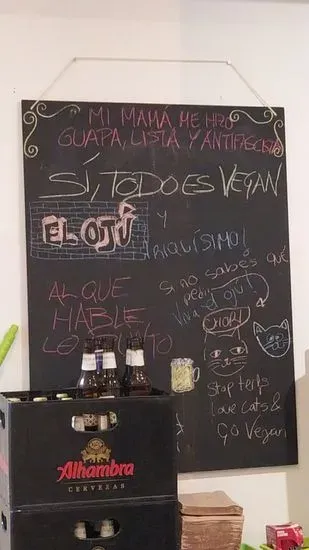 MI MAMÁ ME HIZO
GUAPA, LISTA Y ANTIFASCISTA
SÍ, TODO ES VEGAN
EL OJÚ
Y
RIQUÍSIMO!
AL QUE
HABLE
LO
Si no sabés qué
pedir
Viva el ojú!
Stop terfs
love cats &
Go Vegan
Alhambra
CERVEZAS